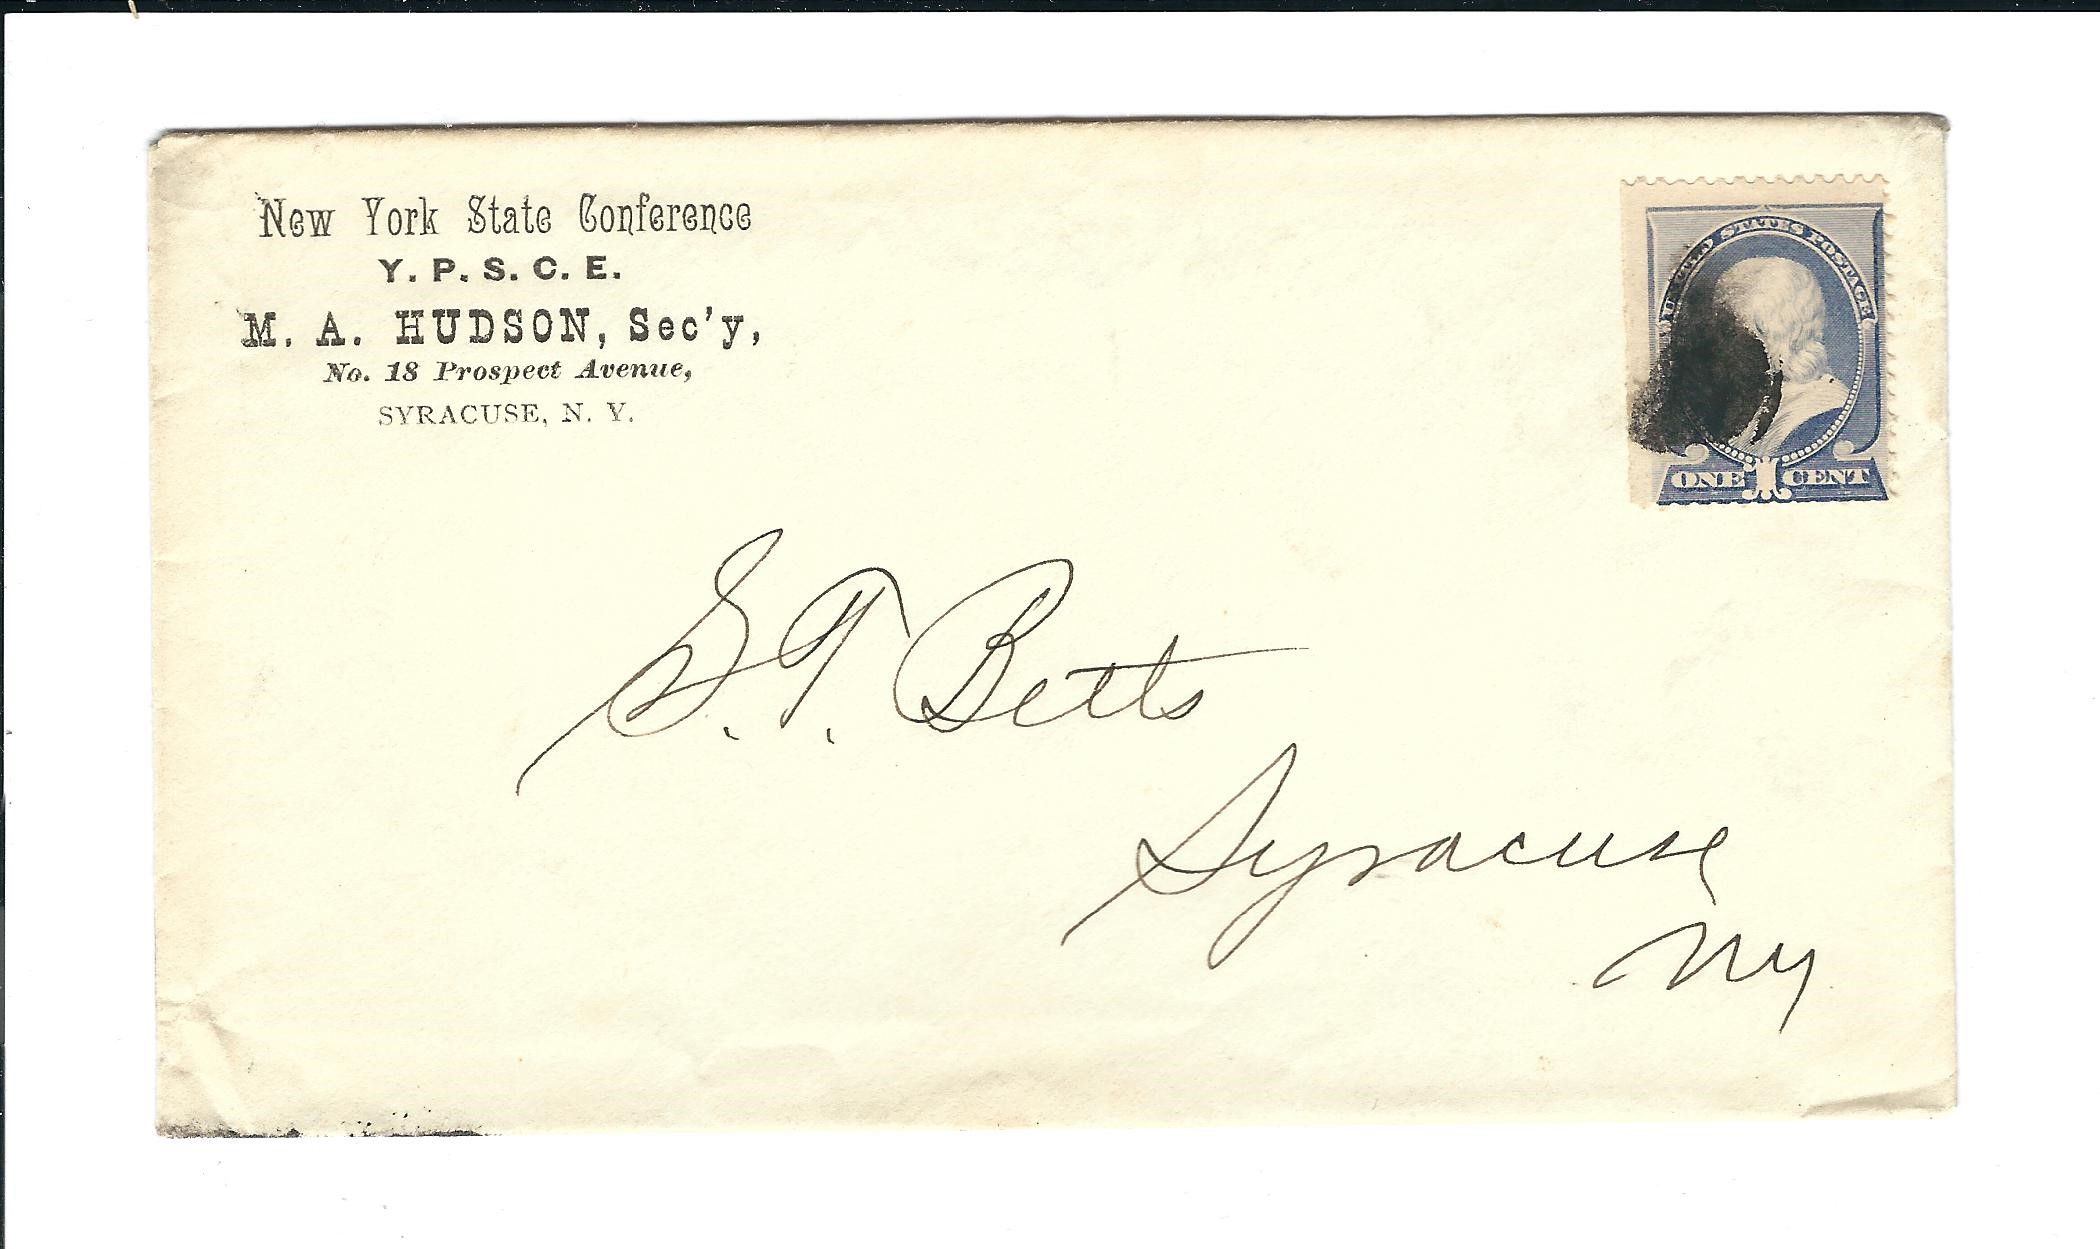 New York State Conference
Y. P. S. C. E.
M. A. HUDSON, Sec'y,
No. 18 Prospect Avenue,
SYRACUSE, N. Y.
UNITED STATES POSTAGE
ONE 1 CENT
S. T. Betts
Syracuse
NY